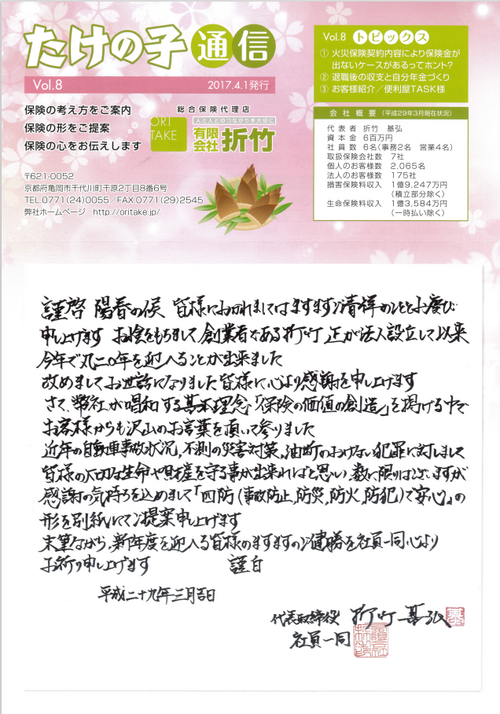 たけの子通信
Vol.8
2017.4.1発行
Vol.8 トピックス
① 火災保険契約内容により保険金が
出ないケースがあるってホント?
② 退職後の収支と自分年金づくり
③ お客様紹介/便利屋TASK様
保険の考え方をご案内
保険の形をご提案
保険の心をお伝えします
総合保険代理店
ORI
TAKE
人と人とのつながりを大切に
有限会社 折竹
〒621-0052
京都府亀岡市千代川町千原2丁目8番6号
TEL 0771(24)0055、FAX 0771(29)2545
弊社ホームページ http://oritake.jp/
会社概要(平成29年3月現在状況)
代表者 折竹 基弘
資本金 6百万円
社員数 6名(事務2名 営業4名)
取扱保険会社数 7社
個人のお客様数 2,065名
法人のお客様数 175社
損害保険料収入 1億9,247万円
(積立部分除く)
生命保険料収入 1億3,584万円
(一時払い除く)
謹啓 陽春の候 皆様におかれましてはますますご清祥のこととお慶び
申し上げます お陰をもちまして、創業者である折竹 正が法人設立して以来
今年で丸二〇年を迎えることが出来ました
改めまして、お世話になりました皆様に心より感謝を申し上げます
さて、弊社が唱和する基本理念「保険の価値の創造」を掲げる中で
お客様からも沢山のお言葉を頂いて参りました
近年の自動車事故状況、不測の災害対策、油断のおけない犯罪に対しまして
皆様の大切な生命や財産を守る事が出来ればと思い、数に限りはございますが
感謝の気持ちを込めまして「四防(事故防止、防災、防火、防犯)で安心」の
形を別紙にてご提案申し上げます
末筆ながら、新年度を迎える皆様のますますのご健勝を社員一同心より
お祈り申し上げます 謹白
平成二十九年三月吉日
代表取締役 折竹 基弘
社員一同